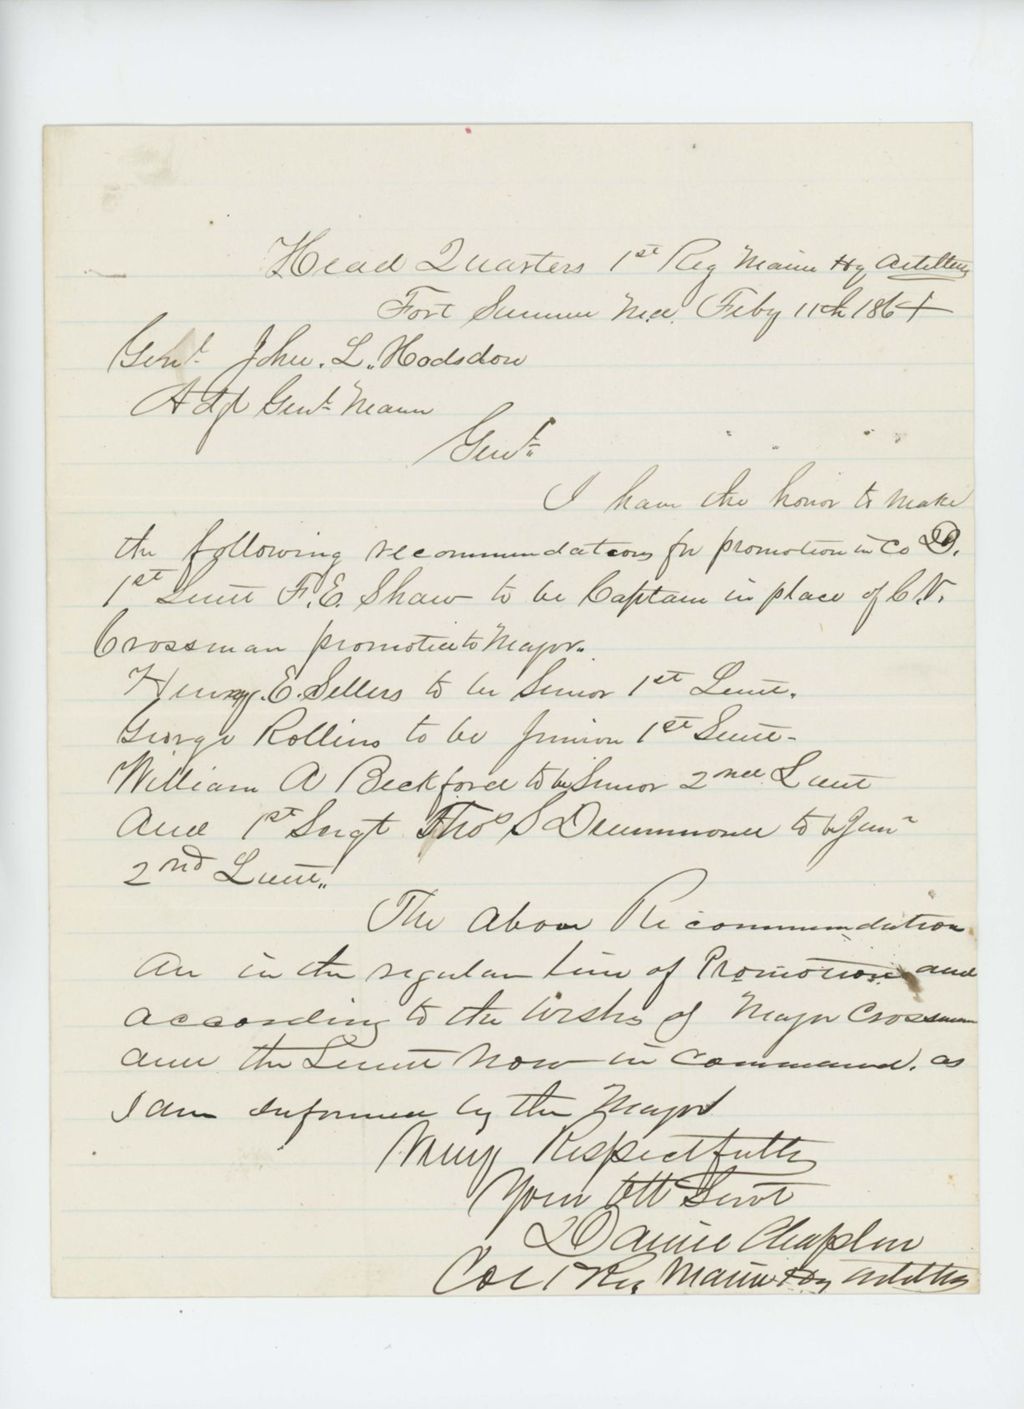 Head Quarters 1st Reg Maine Hy Artillery
Fort Sumner Md. Feby 11th 1864
Genl. John. L. Hodsdon
Adjt Genl Maine
Genl.
I have the honor to make
the following recommendations for promotion in Co D.
1st Lieut F. E. Shaw to be Captain in place of C. V.
Crossman promoted to Major.
Henry. E. Sellers to be Senior 1st Lieut.
George Rollins to be Junior 1st Lieut-
William A Beckford to be Senior 2nd Lieut
And 1st Sergt Thos S Drummond to be Junr
2nd Lieut.
The above Recommendation
are in the regular line of Promotion and
according to the wishes of Major Crossman
and the Lieut now in command. as
I am informed by the Major
Very Respectfully
Your Obt Servt
Daniel Chaplin
Col 1 Reg Maine Hvy Artillery